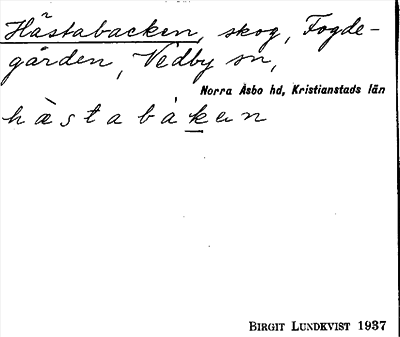 Hästabacken, skog, Fogde-
gården, Vedby sn,
Norra Åsbo hd, Kristianstads län
hàstabàken
BIRGIT LUNDKVIST 1937